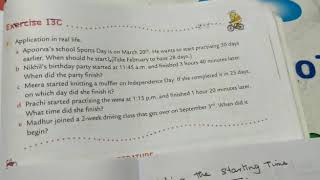 Exercise 13C
Application in real life.
a Apoorva's school Sports Day is on March 20th. He wants to start practising 30 days
earlier. When should he start? (Take February to have 28 days.)
b Nikhil's birthday party started at 11:45 a.m. and finished 3 hours 40 minutes later.
When did the party finish?
c Meera started knitting a muffler on Independence Day. If she completed it in 25 days,
on which day did she finish it?
d Prachi started practising the veena at 1:15 p.m. and finished 1 hour 20 minutes later.
What time did she finish?
e Madhur joined a 2-week drawing class that got over on September 3rd. When did it
begin?
the starting time